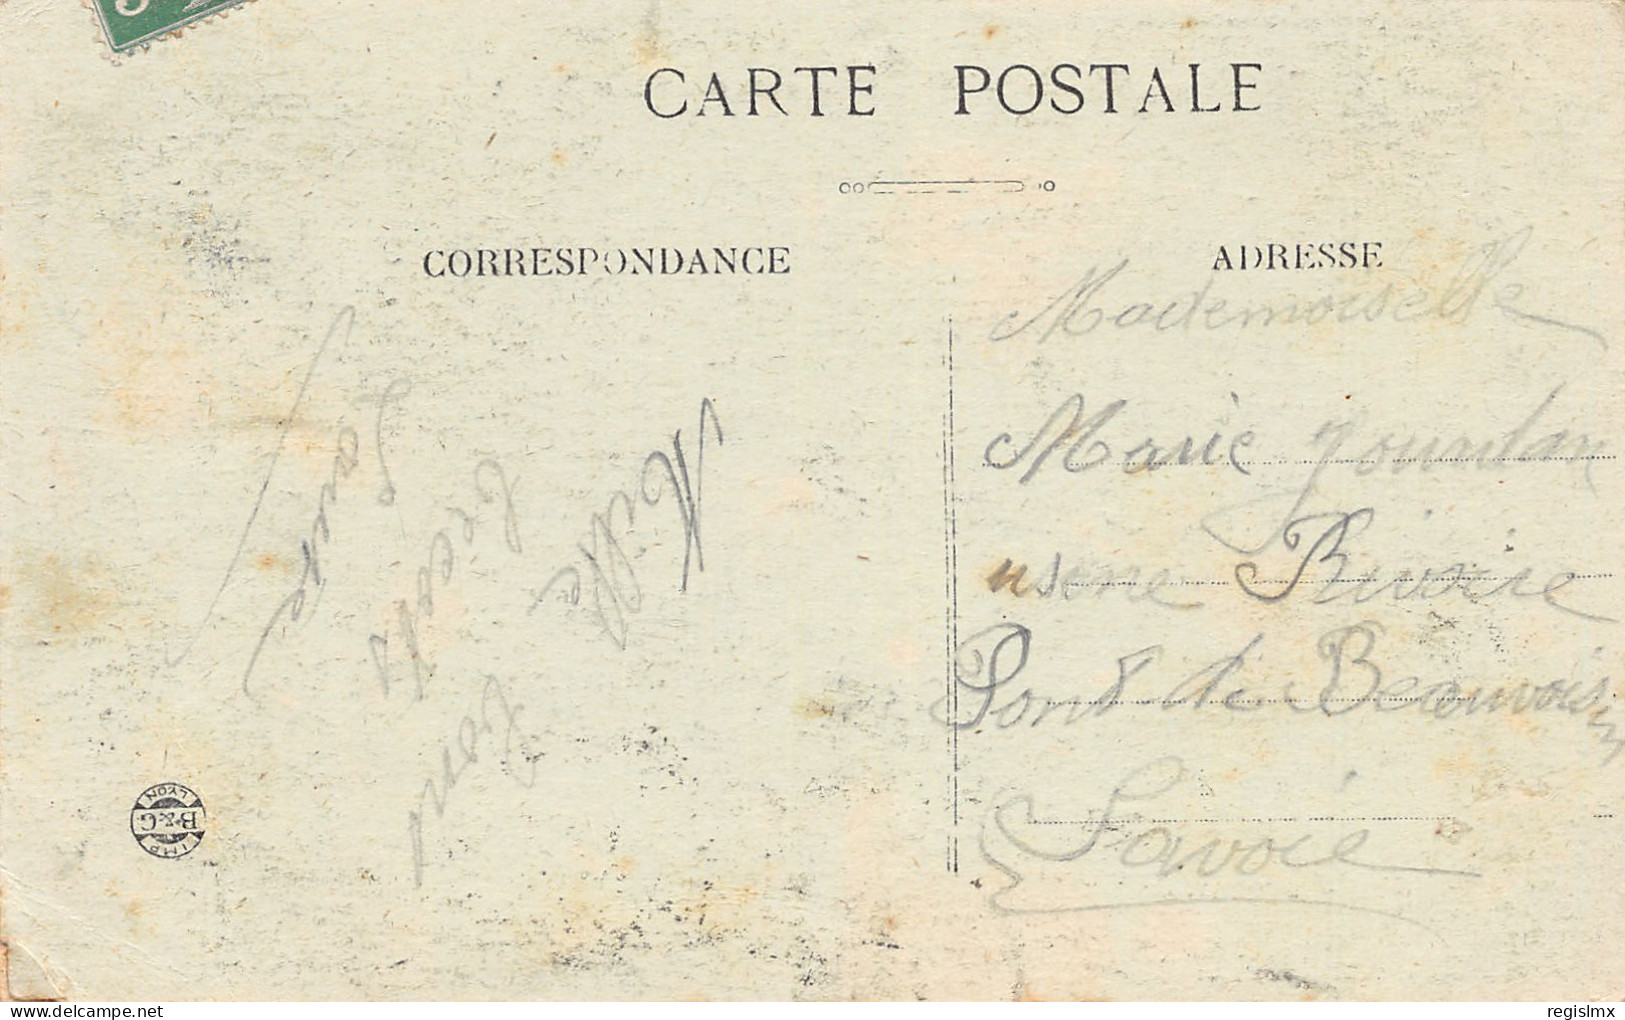 CARTE POSTALE
CORRESPONDANCE
ADRESSE
Mille
Bécots
Mademoiselle
Marie Jourdan
usine Rivoire
Pont de Beauvoisin
Savoie
IMP. B & G LYON
delcampe.net
regislmx